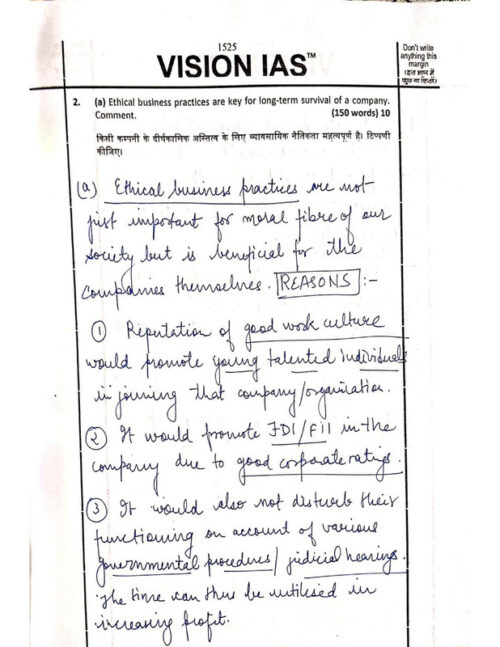 1525
VISION IAS™
Don't write
anything this
margin
(इस भाग में
कुछ ना लिखें)
2. (a) Ethical business practices are key for long-term survival of a company.
Comment. (150 words) 10
किसी कम्पनी के दीर्घकालिक अस्तित्व के लिए व्यावसायिक नैतिकता महत्वपूर्ण है। टिप्पणी
कीजिए।
(a) Ethical business practices are not
just important for moral fibre of our
society but is beneficial for the
companies themselves. REASONS :-
① Reputation of good work culture
would promote young talented individuals
in joining that company/organisation.
② It would promote FDI/FII in the
company due to good corporate ratings.
③ It would also not disturb their
functioning on account of various
governmental procedures/ judicial hearings.
The time can thus be utilised in
increasing profit.